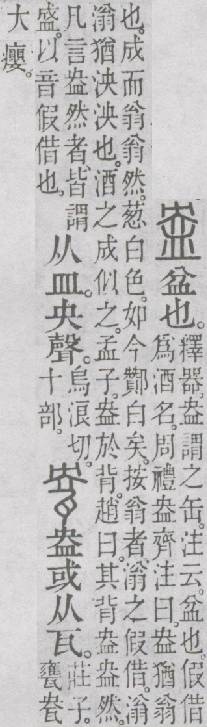 盎盆也。
釋器。盎謂之缶。注云。盆也。假借
爲酒名。周禮盎齊注曰。盎猶翁
也。成而翁翁然。葱白色。如今酇白矣。按翁者滃之假借。滃
滃猶泱泱也。酒之成似之。孟子。盎於背。趙曰。其背盎盎然。
凡言盎然者。皆謂
盛。以音假借也。
从皿。央聲。
烏浪切。
十部。
㼜盎或从瓦。
莊子。
甕㼜
大癭。